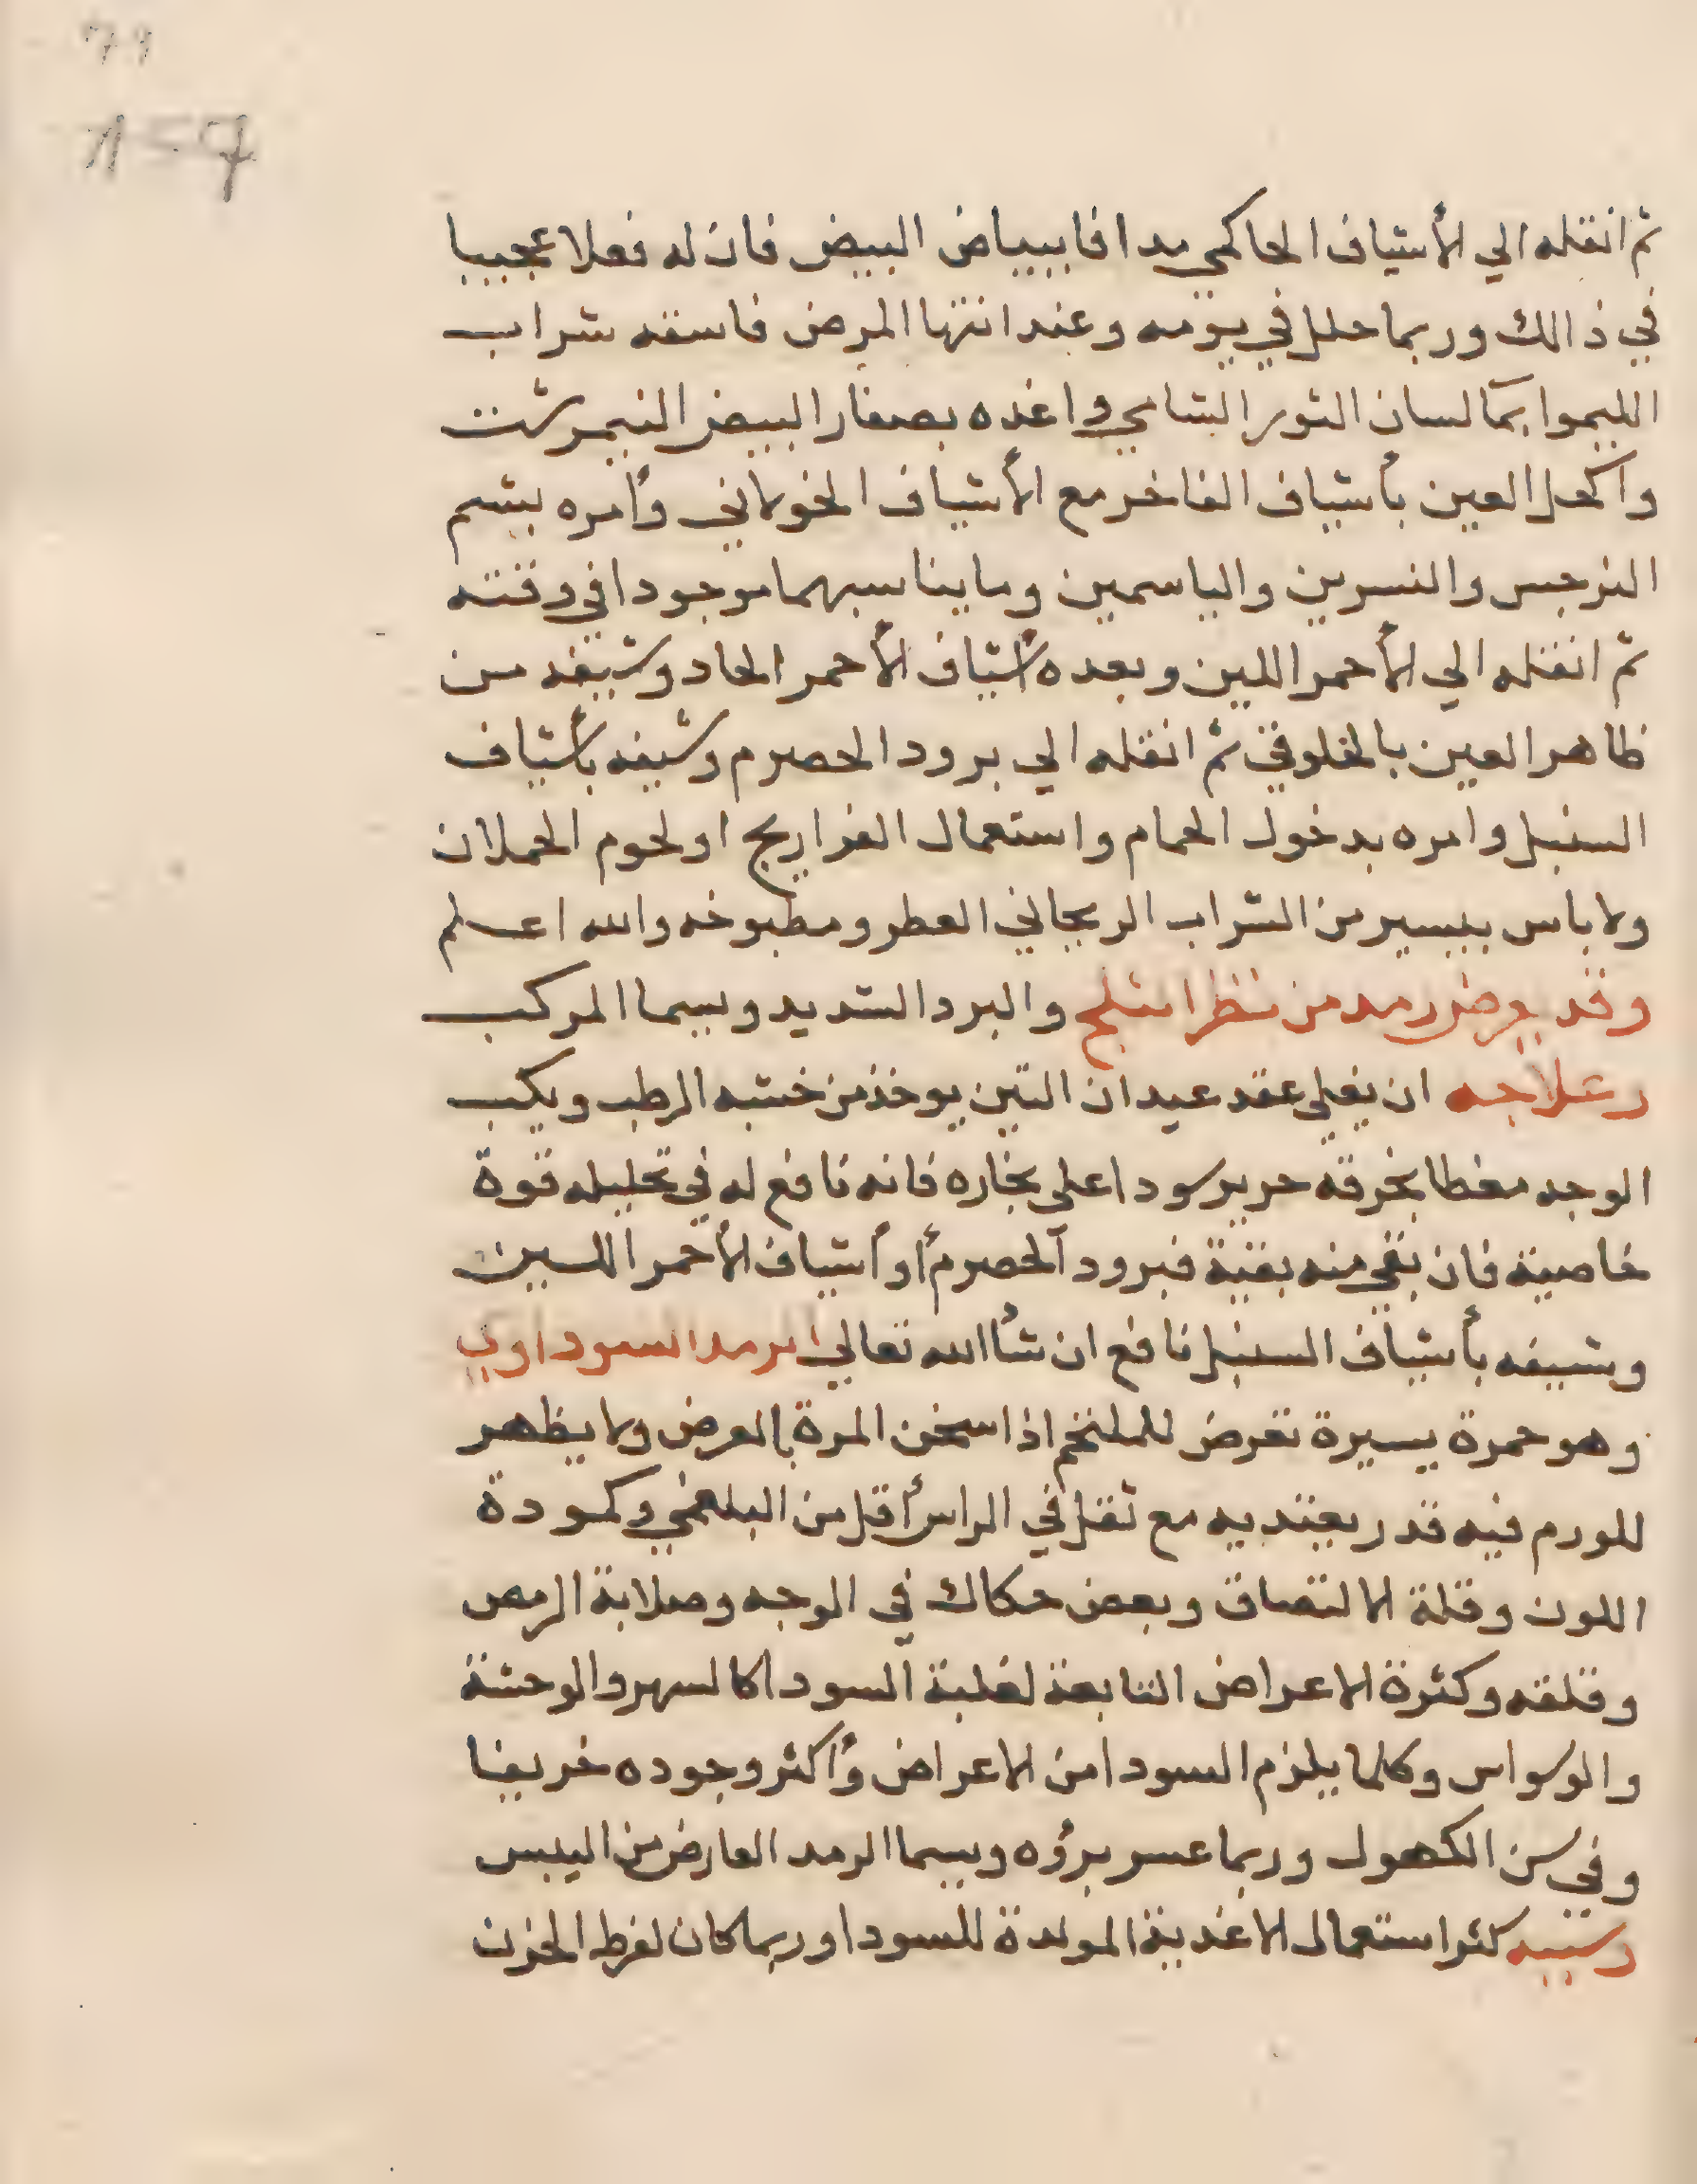 79
157
ثم انقله الي الأشياف الحاكمي مدافا ببياض البيض فان له فعلا عجيبا
في ذالك وربما حلل في يومه وعند انتها المرض فاسقه شراب
الليموا بمآ لسان الثور الشامي واغذه بصفار البيض النيمرشت
واكحل العين بأشياف الفاخر مع الأشياف الخولاني وأمره بشم
النرجس والنسرين والياسمين وما يناسبهما موجودا في وقته
ثم انقله الي الأحمر اللين وبعده أشياف الأحمر الحاد وشيفه من
ظاهر العين بالخلوقي ثم انقله الي برود الحصرم وشيفه بأشياف
السنبل وامره بدخول الحمام واستعمال الفراريج او لحوم الحملان
ولا باس بيسير من الشراب الريحاني العطر ومطبوخه والله اعلم
وقد يعرض رمد من نظر الثلج والبرد الشديد وسيما المركب
وعلاجه ان يغلي عقد عيدان التين يوخذ من خشبه الرطب ويكب
الوجه مغطا بخرقه حرير سودا علي بخاره فانه نافع له في تحليله قوة
خاصية فان بقي منه بقية فبرود الحصرم أو أشياف الأحمر اللين
وشيفه بأشياف السنبل نافع ان شأ الله تعالي الرمد السوداوي
وهو حمرة يسيرة تعرض للملتحم اذا سخن المرة بالعرض ولا يظهر
للورم فيه قدر يعتد به مع ثقل في الراس أقل من البلغمي وكمودة
اللون وقلة الالتصاق وبعض حكاك في الوجه وصلابة الرمص
وقلته وكثرة الاعراض التابعة لغلبة السودا كالسهر والوحشة
والوسواس وكلما يلزم السودا من الاعراض وأكثر وجوده خريفا
وفي سن الكهول وربما عسر برؤه وسيما الرمد العارض من اليبس
وسببه كثر استعمال الاغدية المولدة للسودا وربما كان لفرط الحزن